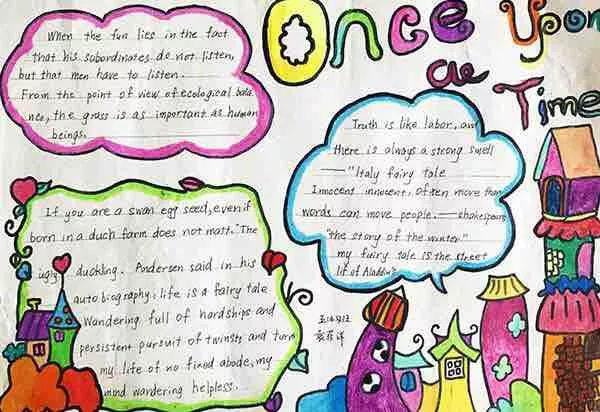 Once Upon
a Time
When the fun lies in the fact
that his subordinates do not listen,
but that men have to listen.
From the point of view of ecological bala
nce, the grass is as important as human
beings.
Truth is like labor, and
there is always a strong smell
—"Italy fairy tale
Imocent innocent, often more than
words can move people. — shakespeare
"the story of the winter"
my fairy tale is the street
lif of Aladdin"
If you are a swan egg seed, even if
born in a duch farm does not matt. "The
ugly duckling. Andersen said in his
autobiography: life is a fairy tale
Wandering full of hardships and
persistent pursuit of twinsty and turn
my life of no fixed abode, my
mind wandering helpless.